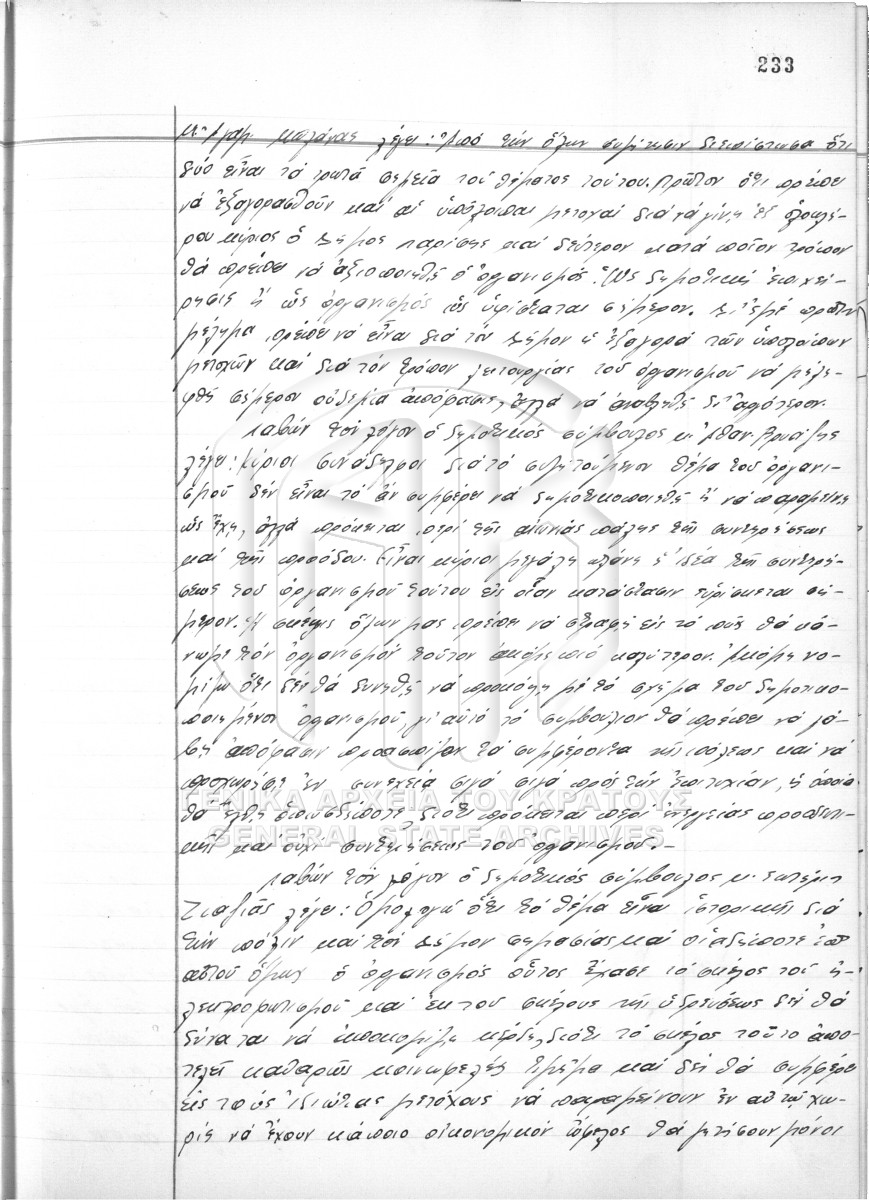 233
κ. Αγαμ. λέγει: Ἀπό τήν ὅλην συζήτησιν διεπίστωσα ὅτι
δύο εἶναι τά σημεῖα τοῦ θέματος τούτου. Πρῶτον ὅτι πρέπει
νά ἐξαγορασθοῦν καί αἱ ὑπόλοιποι μετοχαί διά νά γίνῃ ἐξ ὁλοκλή-
ρου κύριος ὁ Δῆμος Λαρίσης καί δεύτερον κατά ποῖον τρόπον
θά πρέπει νά ἀξιοποιηθῇ ὁ ὀργανισμός. Ὡς δημοτική ἐπιχεί-
ρησις ἤ ὡς ὀργανισμός ὡς ὑφίσταται σήμερον. Δι' ἐμέ πρῶτον
μέλημα πρέπει νά εἶναι διά τόν Δῆμον ἡ ἐξαγορά τῶν ὑπολοίπων
μετοχῶν καί διά τόν τρόπον λειτουργίας τοῦ ὀργανισμοῦ νά μή λη-
φθῇ σήμερον οὐδεμία ἀπόφασις, ἀλλά νά ἀναβληθῇ δι' ἀργότερον.
Λαβών τόν λόγον ὁ δημοτικός σύμβουλος κ. Ἀθαν.
λέγει: Κύριοι συνάδελφοι διά τό συζητούμενον θέμα τοῦ ὀργανι-
σμοῦ δέν εἶναι τό ἄν συμφέρει νά δημοτικοποιηθῇ ἤ νά παραμείνῃ
ὡς ἔχῃ, ἀλλά πρόκειται περί τῆς αἰωνίας πάλης τῆς συντηρήσεως
καί τῆς προόδου. Εἶναι κύριοι μεγάλη πλάνη ἡ ἰδέα τῆς συντηρή-
σεως τοῦ ὀργανισμοῦ τούτου εἰς οἵαν κατάστασιν εὑρίσκεται σή-
μερον. Ἡ σκέψις ὅλων μας πρέπει νά στραφῇ εἰς τό πῶς θά κά-
νωμε τόν ὀργανισμόν τοῦτον ἀκόμη πιό καλύτερον. Ἀκόμη νο-
μίζω ὅτι δέν θά δυνηθῇ νά προκόψῃ μέ τό σχῆμα τοῦ δημοτικο-
ποιημένου ὀργανισμοῦ, γι' αὐτό τό συμβούλιον θά πρέπει νά λά-
βῃ ἀπόφασιν προασπίζον τά συμφέροντα τῆς πόλεως καί νά
προχωρήσῃ ἐν συνεχείᾳ σιγά σιγά πρός τήν ἐπιτυχίαν, ἡ ὁποία
θά ἔλθῃ ὁπωσδήποτε, διότι πρόκειται περί ἐνεργείας προοδευτι-
κῆς καί οὐχί συντηρήσεως τοῦ ὀργανισμοῦ.-
ΓΕΝΙΚΑ ΑΡΧΕΙΑ ΤΟΥ ΚΡΑΤΟΥΣ
GENERAL STATE ARCHIVES
Λαβών τόν λόγον ὁ δημοτικός σύμβουλος κ. Σωτήρι
λέγει: Ὁμολογῶ ὅτι τό θέμα εἶναι ἱστορικῆς διά
τήν πόλιν καί τόν Δῆμον σημασίας καί οἱαδήποτε
αὐτοῦ ὅμως ὁ ὀργανισμός οὗτος ἔχασε τό σκέλος τοῦ ἠ-
λεκτροφωτισμοῦ καί ἐκ τοῦ σκέλους τῆς ὑδρεύσεως δέν θά
δύναται νά ἀποκομίζῃ κέρδη, διότι τό σκέλος τοῦτο ἀπο-
τελεῖ καθαρῶς κοινωφελές τμῆμα καί δέν θά συμφέρει
εἰς τούς ἰδιώτας μετόχους νά παραμείνουν ἐν αὐτῷ χω-
ρίς νά ἔχουν κάποιο οἰκονομικόν ὄφελος θά ζητήσουν μόνοι